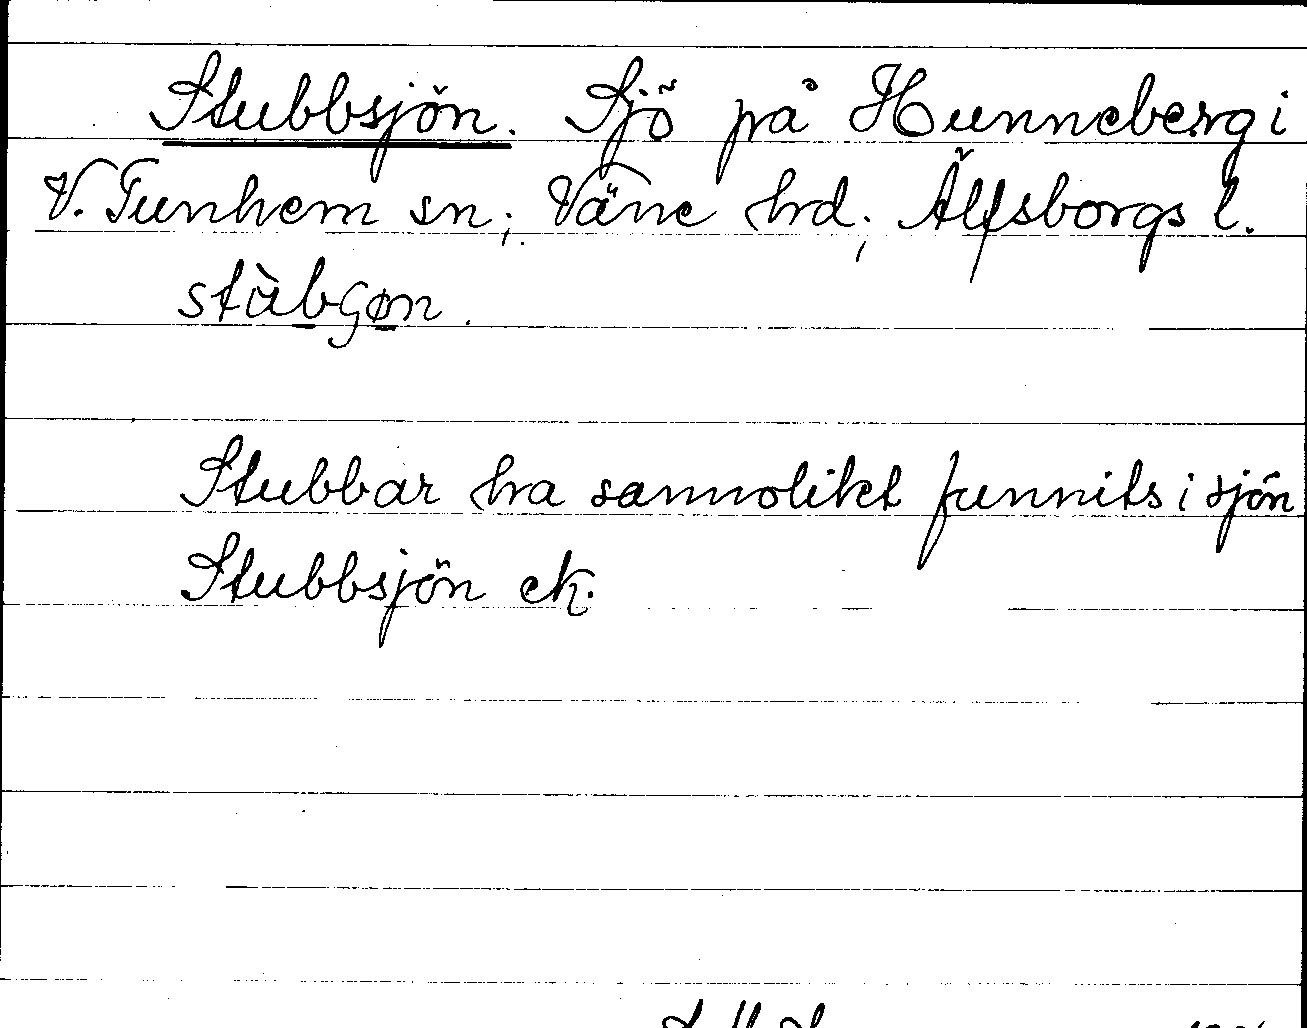 Stubbsjön. Sjö på Hunneberg i
V. Tunhem sn; Väne hrd; Älfsborgs l.
stàbʂøn.
Stubbar ha sannolikt funnits i sjön
Stubbsjön ek.